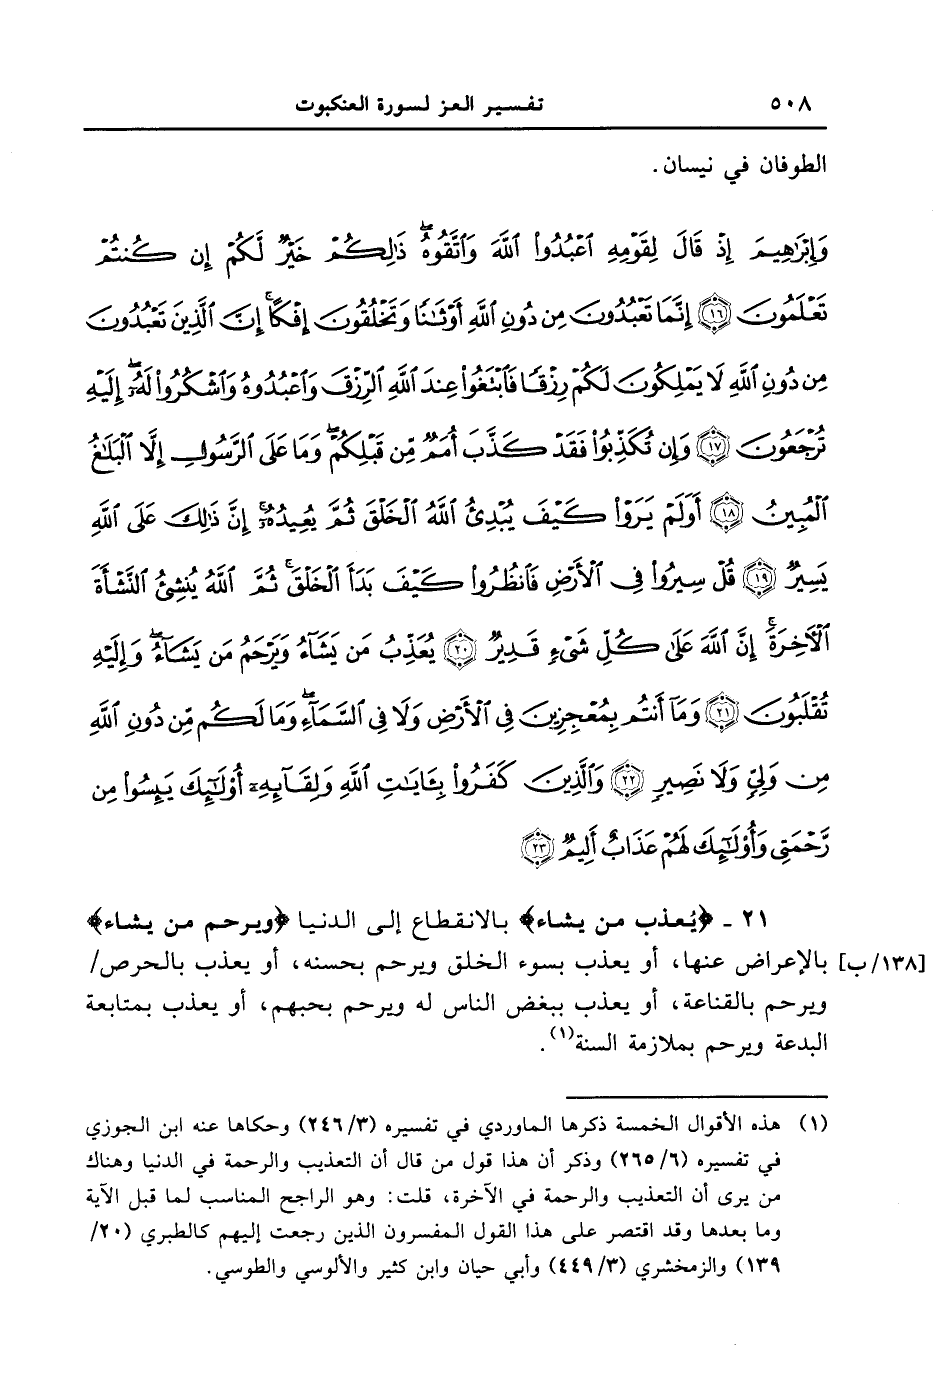 ٥٠٨ تفسير العز لسورة العنكبوت
الطوفان في نيسان.
وَإِبْرَٰهِيمَ إِذْ قَالَ لِقَوْمِهِ ٱعْبُدُوا۟ ٱللَّهَ وَٱتَّقُوهُ ۖ ذَٰلِكُمْ خَيْرٌ لَّكُمْ إِن كُنتُمْ
تَعْلَمُونَ ﴿١٦﴾ إِنَّمَا تَعْبُدُونَ مِن دُونِ ٱللَّهِ أَوْثَٰنًا وَتَخْلُقُونَ إِفْكًا ۚ إِنَّ ٱلَّذِينَ تَعْبُدُونَ
مِن دُونِ ٱللَّهِ لَا يَمْلِكُونَ لَكُمْ رِزْقًا فَٱبْتَغُوا۟ عِندَ ٱللَّهِ ٱلرِّزْقَ وَٱعْبُدُوهُ وَٱشْكُرُوا۟ لَهُۥٓ ۖ إِلَيْهِ
تُرْجَعُونَ ﴿١٧﴾ وَإِن تُكَذِّبُوا۟ فَقَدْ كَذَّبَ أُمَمٌ مِّن قَبْلِكُمْ ۖ وَمَا عَلَى ٱلرَّسُولِ إِلَّا ٱلْبَلَٰغُ
ٱلْمُبِينُ ﴿١٨﴾ أَوَلَمْ يَرَوْا۟ كَيْفَ يُبْدِئُ ٱللَّهُ ٱلْخَلْقَ ثُمَّ يُعِيدُهُۥٓ ۚ إِنَّ ذَٰلِكَ عَلَى ٱللَّهِ
يَسِيرٌ ﴿١٩﴾ قُلْ سِيرُوا۟ فِى ٱلْأَرْضِ فَٱنظُرُوا۟ كَيْفَ بَدَأَ ٱلْخَلْقَ ۚ ثُمَّ ٱللَّهُ يُنشِئُ ٱلنَّشْأَةَ
ٱلْآخِرَةَ ۚ إِنَّ ٱللَّهَ عَلَىٰ كُلِّ شَىْءٍ قَدِيرٌ ﴿٢٠﴾ يُعَذِّبُ مَن يَشَآءُ وَيَرْحَمُ مَن يَشَآءُ ۖ وَإِلَيْهِ
تُقْلَبُونَ ﴿٢١﴾ وَمَآ أَنتُم بِمُعْجِزِينَ فِى ٱلْأَرْضِ وَلَا فِى ٱلسَّمَآءِ ۖ وَمَا لَكُم مِّن دُونِ ٱللَّهِ
مِن وَلِىٍّ وَلَا نَصِيرٍ ﴿٢٢﴾ وَٱلَّذِينَ كَفَرُوا۟ بِـَٔايَٰتِ ٱللَّهِ وَلِقَآئِهِۦٓ أُو۟لَٰٓئِكَ يَئِسُوا۟ مِن
رَّحْمَتِى وَأُو۟لَٰٓئِكَ لَهُمْ عَذَابٌ أَلِيمٌ ﴿٢٣﴾
٢١ - ﴿يُعذب من يشاء﴾ بالانقطاع إلى الدنيا ﴿ويرحم من يشاء﴾
بالإعراض عنها، أو يعذب بسوء الخلق ويرحم بحسنه، أو يعذب بالحرص/ [١٣٨/ب]
ويرحم بالقناعة، أو يعذب ببغض الناس له ويرحم بحبهم، أو يعذب بمتابعة
البدعة ويرحم بملازمة السنة(١).
(١) هذه الأقوال الخمسة ذكرها الماوردي في تفسيره (٢٤٦/٣) وحكاها عنه ابن الجوزي
في تفسيره (٢٦٥/٦) وذكر أن هذا قول من قال أن التعذيب والرحمة في الدنيا وهناك
من يرى أن التعذيب والرحمة في الآخرة، قلت: وهو الراجح المناسب لما قبل الآية
وما بعدها وقد اقتصر على هذا القول المفسرون الذين رجعت إليهم كالطبري (٢٠/
١٣٩) والزمخشري (٤٤٩/٣) وأبي حيان وابن كثير والألوسي والطوسي.